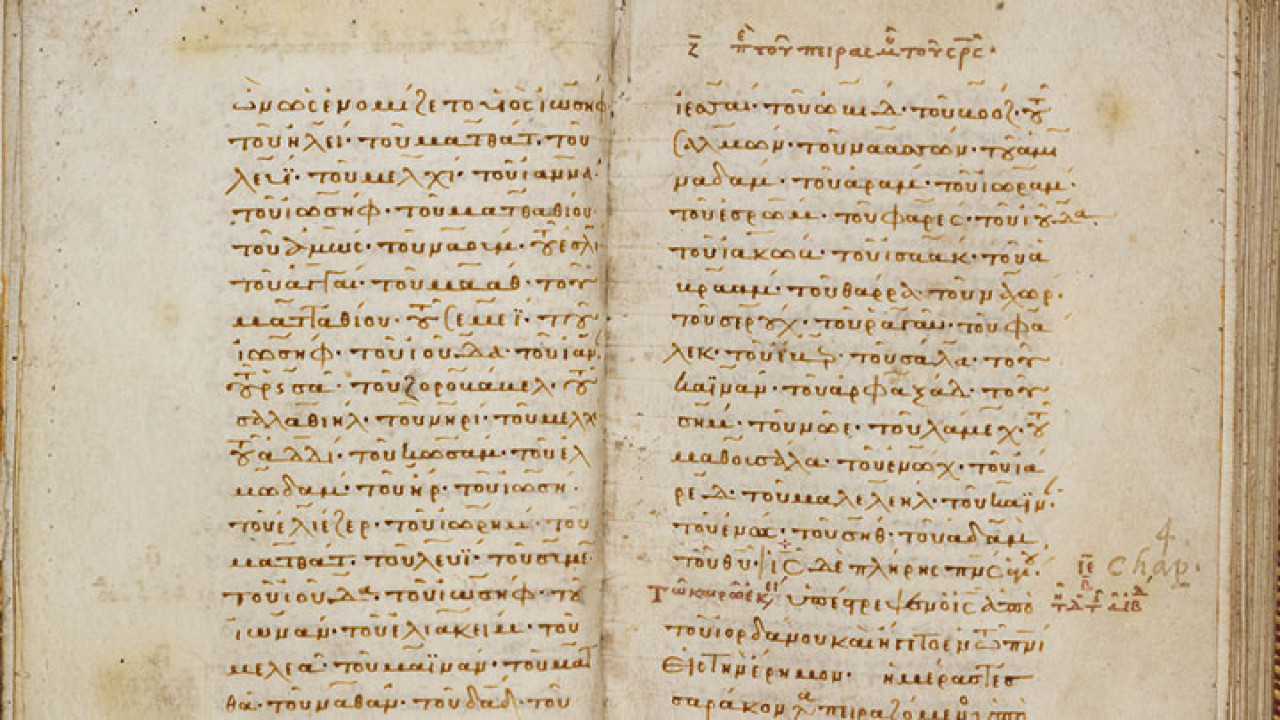 ὢν ὡς ἐνομίζετο υἱὸς ἰωσὴφ
τοῦ ἠλεί· τοῦ ματθάτ· τοῦ
λευΐ· τοῦ μελχί· τοῦ ἰαννά·
τοῦ ἰωσήφ· τοῦ ματθαθίου·
τοῦ ἀμμώς· τοῦ ναούμ· τοῦ ἐσλὶ
τοῦ ἀγγαί· τοῦ μαάθ· τοῦ
ματταθίου· τοῦ σεμεΐ· τοῦ
ἰωσήφ· τοῦ ἰούδα· τοῦ ἰωαν
τοῦ ρησσά· τοῦ ζοροβάβελ· τοῦ
σαλαθιήλ· τοῦ νηρί· τοῦ μελχὶ
τοῦ ἀδδί· τοῦ κωσάμ· τοῦ ἐλ
μωδάμ· τοῦ ἤρ· τοῦ ἰωσή·
τοῦ ἐλιέζερ· τοῦ ἰωρήμ· τοῦ
ματθάτ· τοῦ λευΐ· τοῦ συμε
τοῦ ἰούδα· τοῦ ἰωσήφ· τοῦ
ἰωνάν· τοῦ ἐλιακείμ· τοῦ
μελεᾶ· τοῦ μαϊνάν· τοῦ ματ
θά· τοῦ ναθάν· τοῦ δαδ· τοῦ
ζ π τοῦ πειρασμοῦ τοῦ
ἰεσσαί· τοῦ ὠβήδ· τοῦ βοόζ· τοῦ
σαλμών· τοῦ ναασσών· τοῦ ἀμι
ναδάμ· τοῦ ἀράμ· τοῦ ἰωράμ·
τοῦ ἐσρώμ· τοῦ φαρές· τοῦ ἰούδα·
τοῦ ἰακώβ· τοῦ ἰσαάκ· τοῦ ἀ
βραάμ· τοῦ θάρρα· τοῦ ναχώρ·
τοῦ σερούχ· τοῦ ραγαῦ· τοῦ φα
λέκ· τοῦ ἔβερ· τοῦ σαλά· τοῦ
καϊνάν· τοῦ ἀρφαξάδ· τοῦ
σήμ· τοῦ νῶε· τοῦ λάμεχ· τοῦ
μαθουσάλα· τοῦ ἐνώχ· τοῦ ἰα
ρέδ· τοῦ μαλελεήλ· τοῦ καϊν
τοῦ ἐνώς· τοῦ σήθ· τοῦ ἀδάμ
τοῦ θυ· ις δὲ πλήρης πνς ἁγίου·
ὑπέστρεψεν ἀπὸ
τοῦ ἰορδάνου καὶ ἤγετο ἐν τῶ πνι
εἰς τὴν ἔρημον· ἡμέρας τεσ
σαράκοντα πειραζόμενος ὑπὸ
4
Chap.
ιε